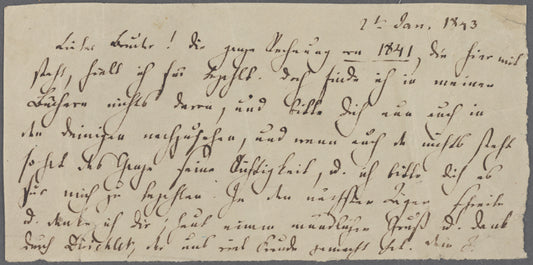 2t Jan. 1843
Lieber Bruder! die ganze Rechnung von 1841, die hier mit
steht, hielt ich für bezahlt. Doch finde ich in meinen
Büchern nichts davon, und bitte Dich nun auch in
den deinigen nachzusehen, und wenn auch da nichts steht
so hat das Ganze seine Richtigkeit, u. ich bitte dich es
für mich zu bezahlen. In den nächsten Tagen
u. danke ich dir heut einen mündlichen Gruß u. Dank
durch Dirichlet, der uns viel Freude gemacht hat. Dein